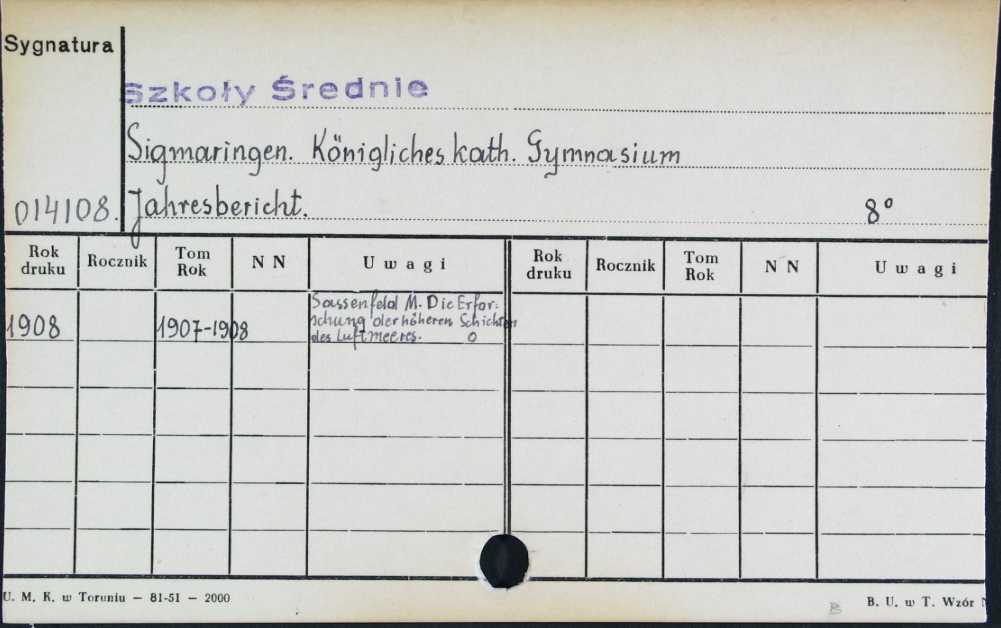 Sygnatura
Szkoły Średnie
Sigmaringen. Königliches kath. Gymnasium
014108. Jahresbericht. 8°
Rok druku Rocznik Tom Rok N N U w a g i Rok druku Rocznik Tom Rok N N U w a g i
1908 1907-1908 Sassenfeld M. Die Erfor-
schung der höheren Schichten
des Luftmeeres. O
U. M. K. w Toruniu — 81-51 — 2000
B
B. U. w T. Wzór